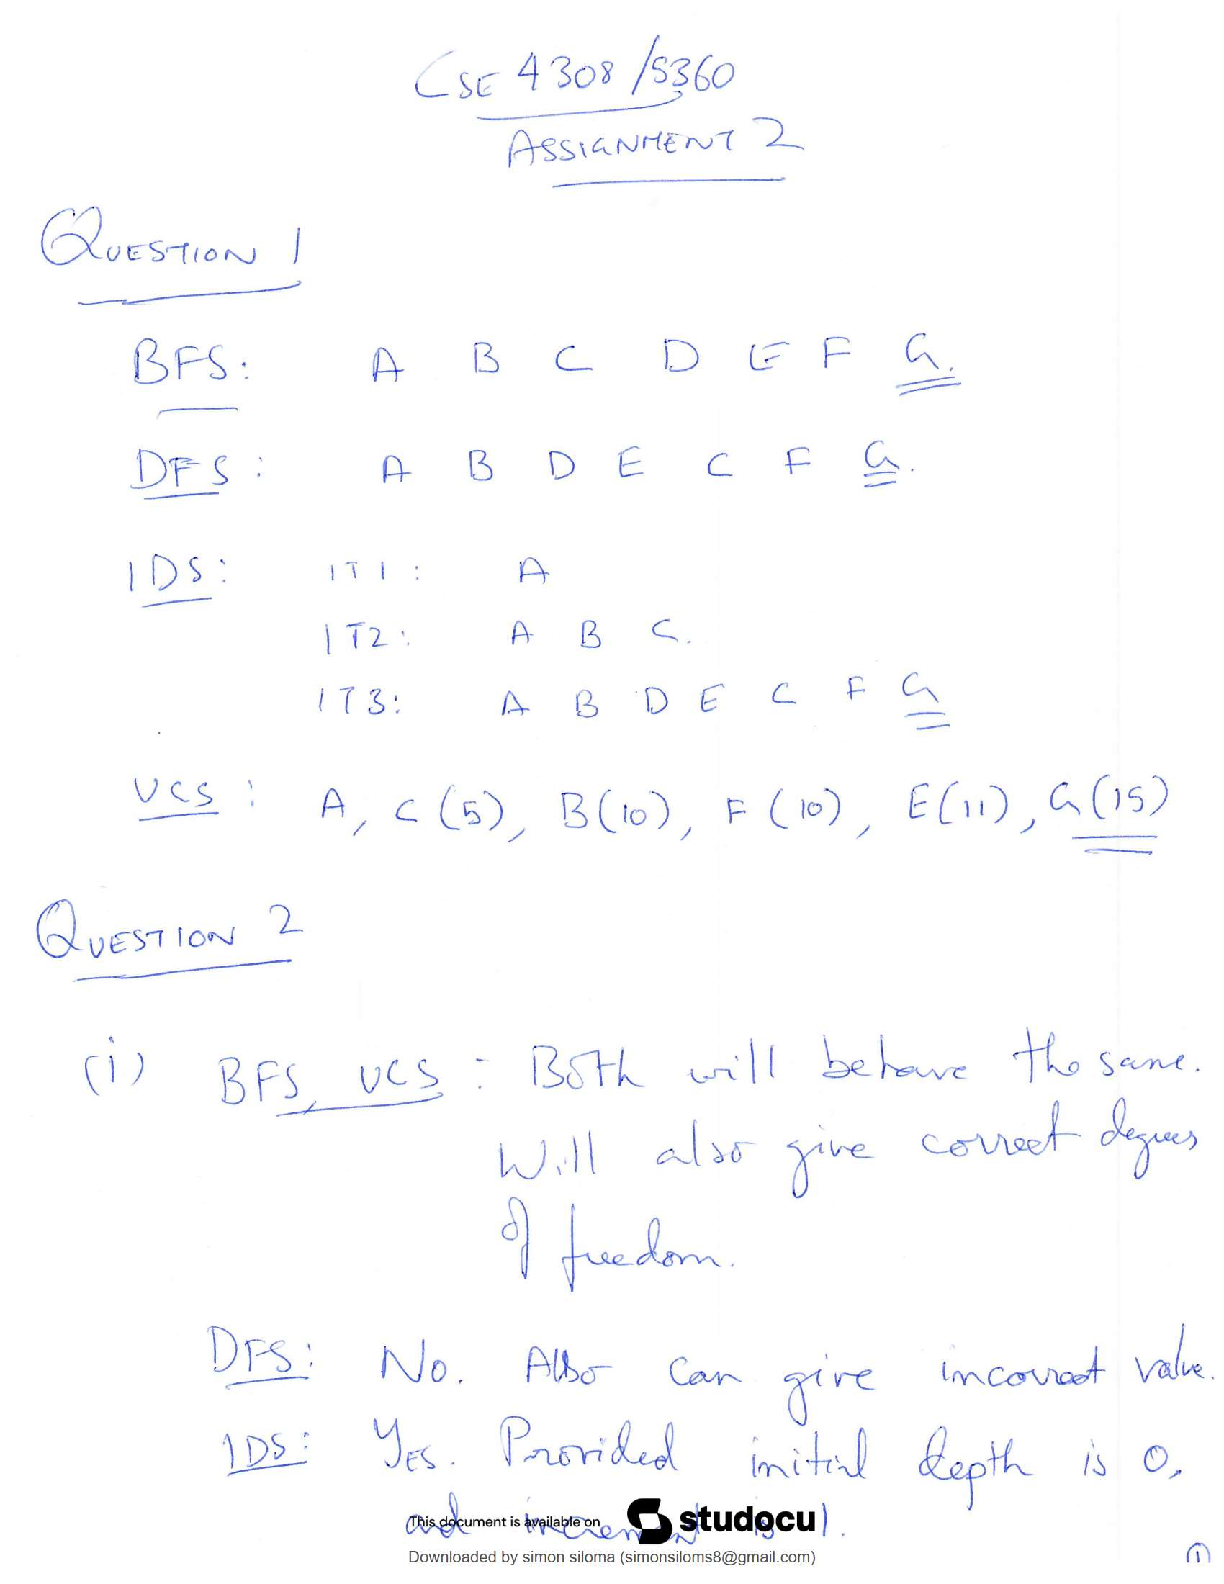 CSE 4308/5360
ASSIGNMENT 2
QUESTION 1
BFS: A B C D E F G.
DFS: A B D E C F G.
IDS: IT1: A
IT2: A B C.
IT3: A B D E C F G
UCS: A, C(5), B(10), F(10), E(11), G(15)
QUESTION 2
(i) BFS, UCS: Both will behave the same.
Will also give correct degrees
of freedom.
DFS: No. Also can give incorrect value.
IDS: YES. Provided initial depth is 0,
and increment is 1.
This document is available on studocu
Downloaded by simon siloma (simonsiloms8@gmail.com)
1